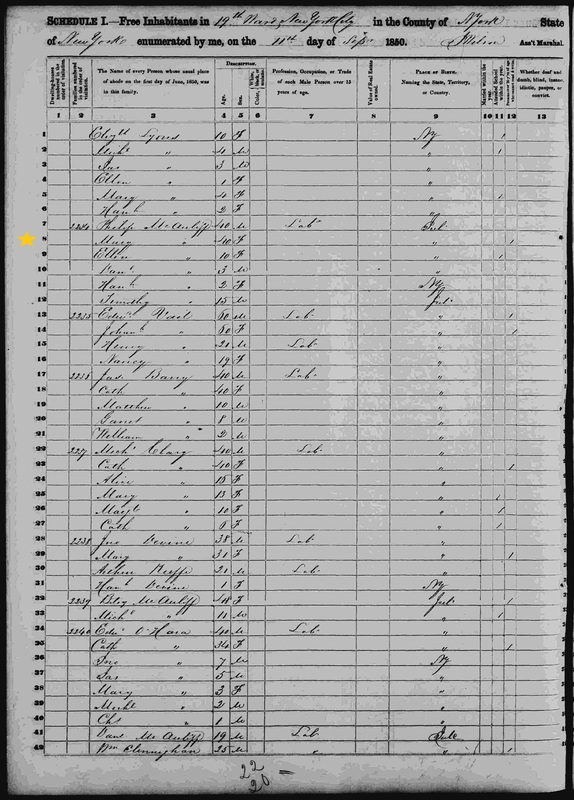 SCHEDULE I.—Free Inhabitants in 19th Ward, New York City in the County of N York State
of New York enumerated by me, on the 11th day of Sep. 1850. Ass't Marshal.
Dwelling-houses numbered in the order of visitation.
Families numbered in the order of visitation.
The Name of every Person whose usual place of abode on the first day of June, 1850, was in this family.
DESCRIPTION.
Age.
Sex.
Color, White, black, or mulatto.
Profession, Occupation, or Trade of each Male Person over 15 years of age.
Value of Real Estate owned.
PLACE OF BIRTH. Naming the State, Territory, or Country.
Married within the year.
Whether deaf and dumb, blind, insane, idiotic, pauper, or convict.
1 2 3 4 5 6 7 8 9 10 11 12 13
1 Elizth Lyons 10 F NY 1
2 Michl " 4 M " 1
3 Jas " 3 M "
4 Ellen " 1 F "
5 Mary " 4 F " 1
6 Hanh " 2 F "
7 2234 Philip McAuliff 40 M Lab Irel
8 Mary " 40 F " 1
9 Ellen " 10 F " 1
10 Danl " 3 M "
11 Hanh " 2 F NY
12 Timothy " 15 M Irel
13 2235 Edwd 80 M Lab " 1
14 Johanh " 80 F " 1
15 Henry " 21 M Lab "
16 Nancy " 19 F "
17 Jas Barry 40 M Lab "
18 Cath " 40 F "
19 Matthew " 10 M "
20 Garret " 8 M "
21 William " 2 M "
22 2237 Michl Clary 40 M Lab "
23 Cath " 40 F " 1
24 Alice " 15 F "
25 Mary " 13 F " 1
26 Margt " 10 F " 1
27 Cath " 6 F " 1
28 2238 Jno Devine 38 M Lab "
29 Mary " 31 F " 1
30 Arthur 21 M Lab "
31 Hanh Devine 1 F NY
32 2239 McAuliff 48 F Irel 1
33 Michl " 11 M " 1
34 2240 Edwd O'Hara 40 M Lab "
35 Cath " 34 F " 1
36 Jno " 7 M NY
37 Jas " 5 M "
38 Mary " 3 F "
39 Michl " 2 M "
40 Chs " 1 M "
41 McAuliff 19 M Lab
42 Wm Clenninghan 25 M " " 1
22
20 =